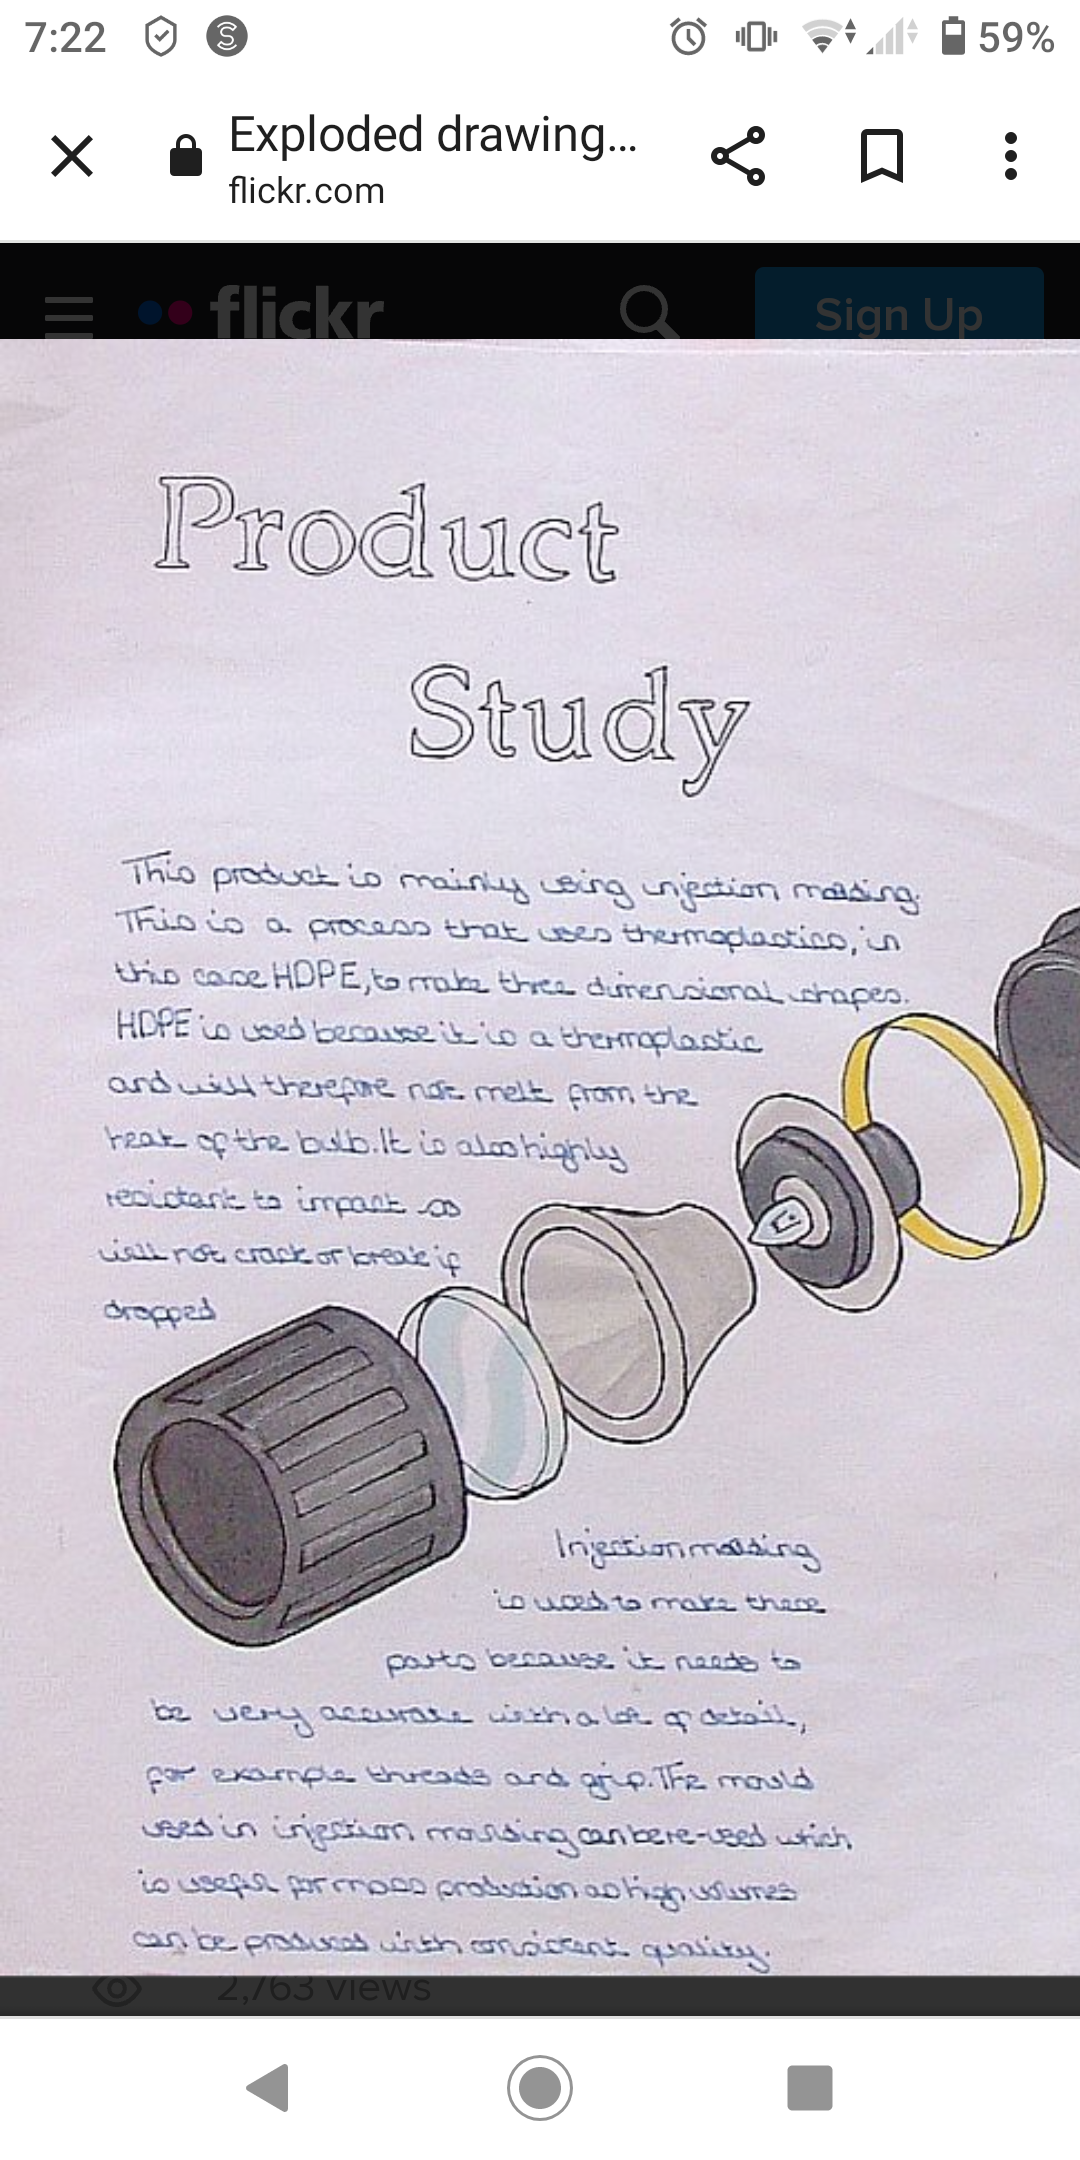 7:22
59%
Exploded drawing...
flickr.com
flickr
Sign Up
Product
Study
This product is mainly using injection molding.
This is a process that uses thermoplastics, in
this case HDPE, to make three dimensional shapes.
HDPE is used because it is a thermoplastic
and will therefore not melt from the
heat of the bulb. It is also highly
resistant to impact so
will not crack or break if
dropped
Injection molding
is used to make these
parts because it needs to
be very accurate with a lot of detail,
for example threads and grip. The mould
used in injection moulding can be re-used which
is useful for mass production as high volumes
can be produced with consistent quality.
2,763 views